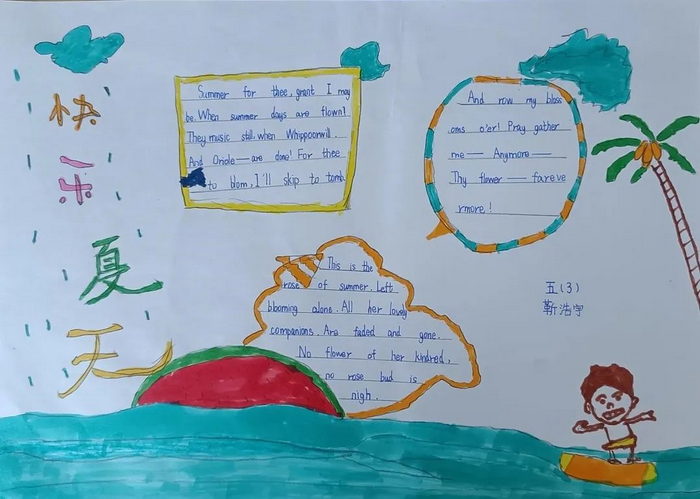 快
乐
夏
天
Summer for thee, grant I may
be. When summer days are flown!
They music still, when Whippoorwill.
And Oriole—are done! For thee
to blom, I'll skip to tomb
And row my bloss
oms o'er! Pray gather
me— Anymore—
Thy flower—fareve
rmore!
This is the
rose of summer. Left
blooming alone. All her lovely
companions. Are faded and gone.
No flower of her kindred,
no rose bud is
nigh.
五(3)
靳浩宇